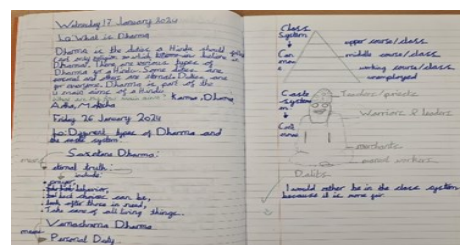 Wednesday 17 January 2024
Lo: What is Dharma
Dharma is the duties a Hindu should follow
Each may religion on which
Dharma. There are various types of
Dharma for a Hindu. Some duties are
personal and others are eternal. Duties are
for everyone. Dharma is part of the
4 main aims of a Hindu.
Karma, Dharma,
Artha, Moksha
Friday 26 January 2024
Lo: Different types of Dharma and
the caste system.
Sanatana Dharma:
eternal truth:
include:
prayer,
behavior,
choices can be,
look after those in need,
Take care of all living things.
Varnashrama Dharma
Personal Duty
Class
System
Can
move
upper course/class
middle course/class
working course/class
unemployed
Caste
system
Can't
move
Teachers/priests
Warriors & leaders
merchants
manual workers
Dalits
I would rather be in the class system
because it is more fair